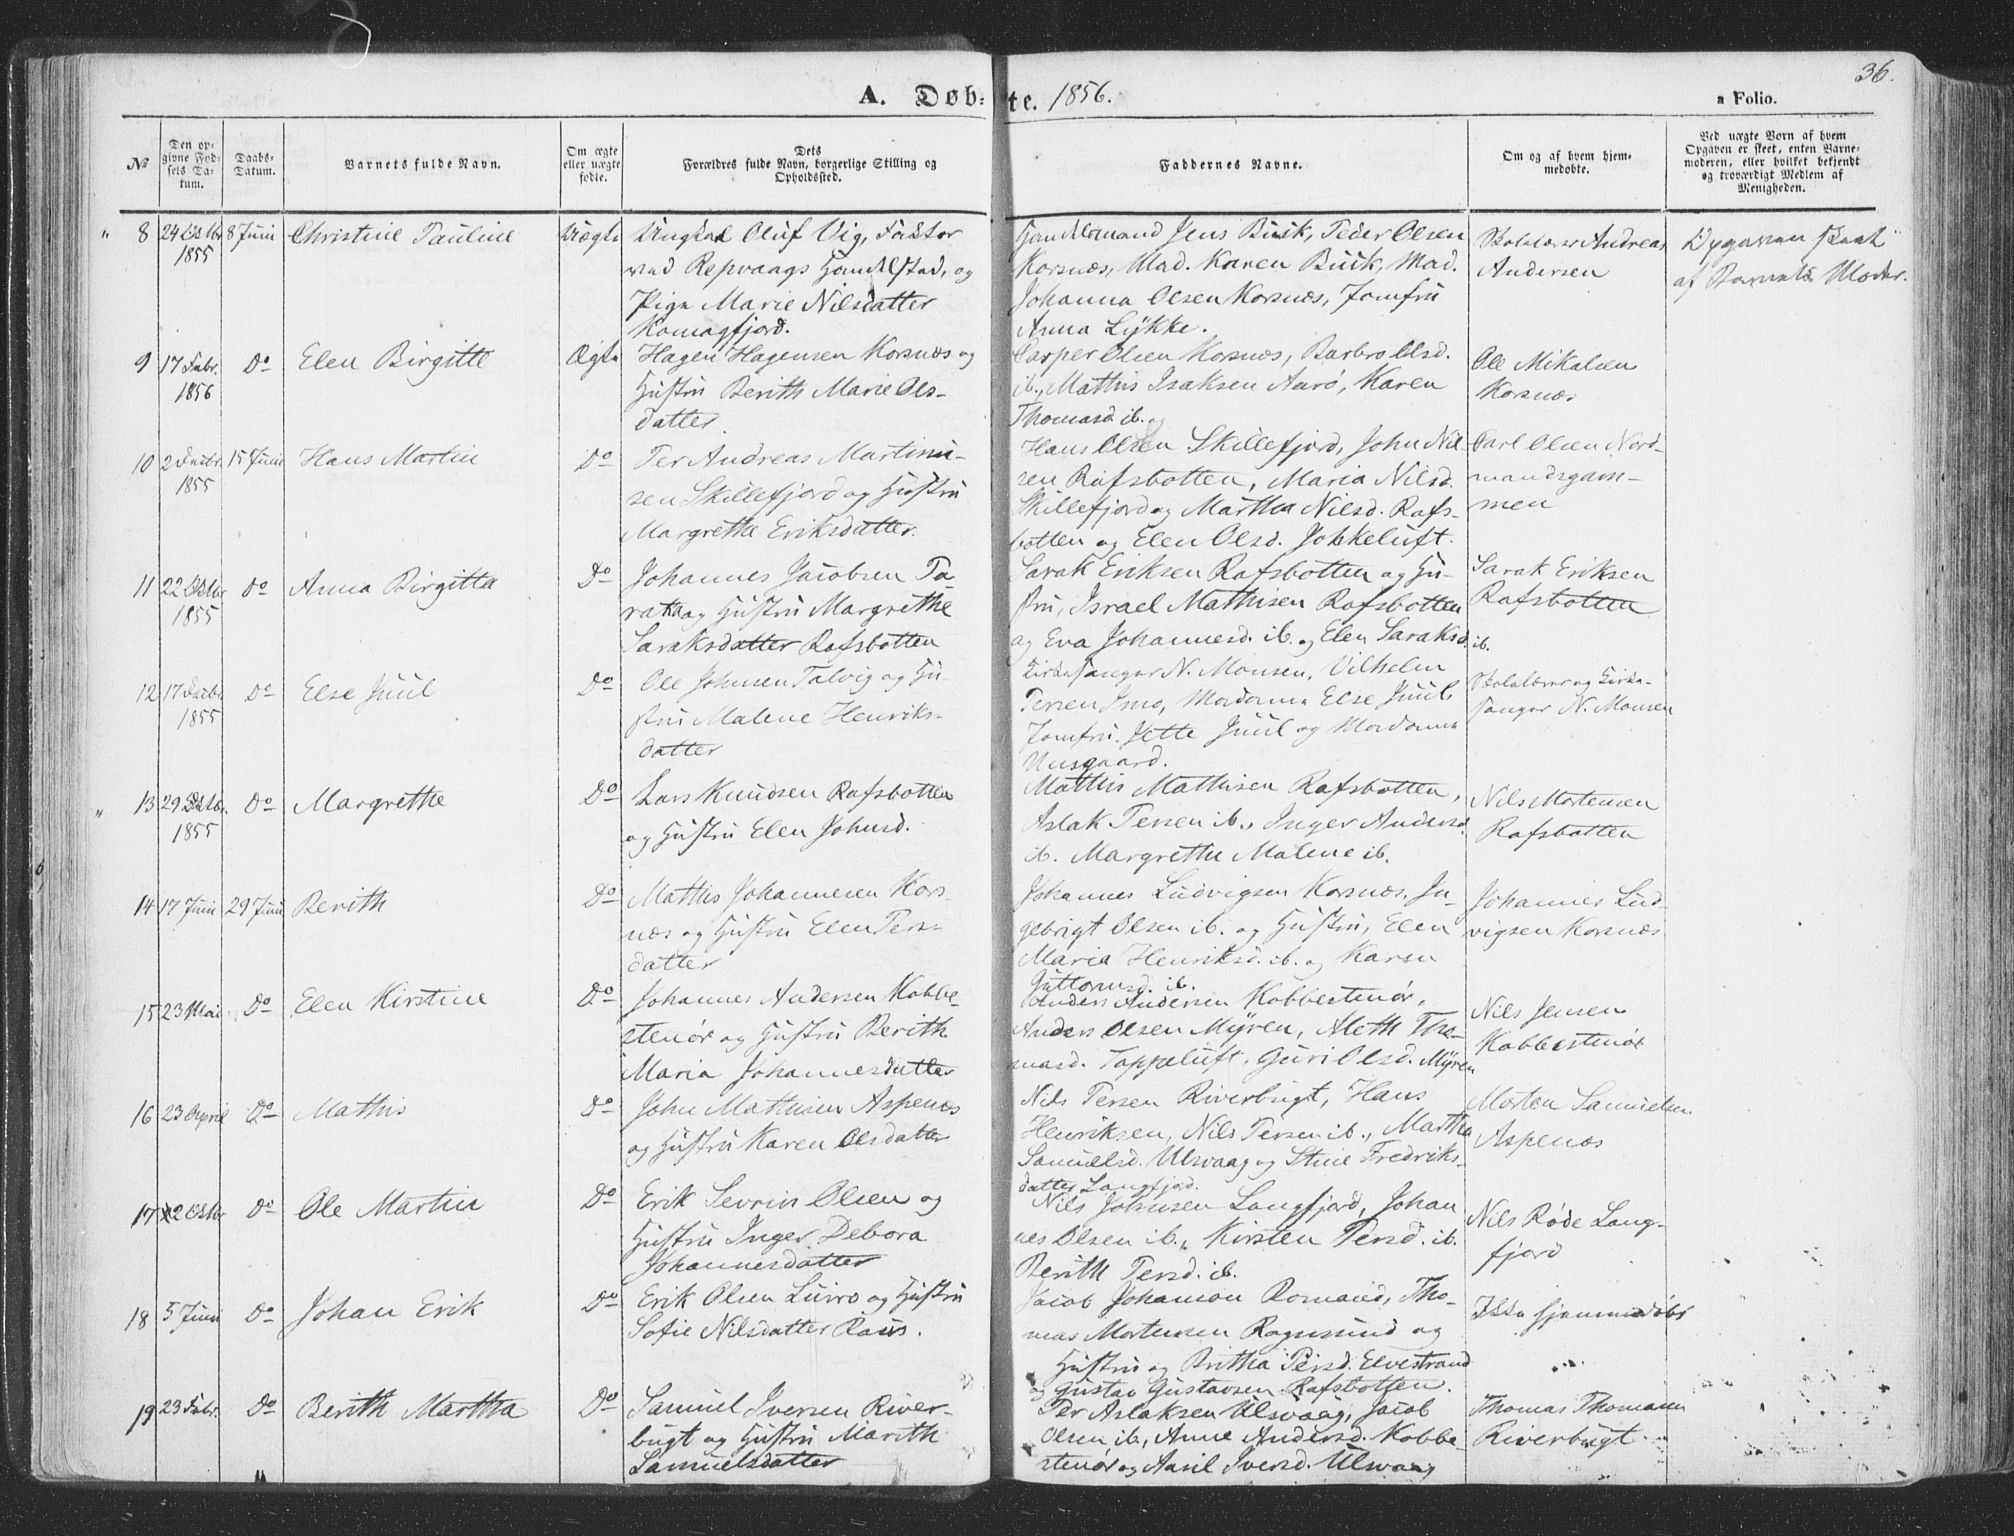 36.
A. Døbte. 1856.
a Folio.
№
Den opgivne Fødsels Datum.
Daabs-Datum.
Barnets fulde Navn.
Om ægte eller uægte fødte.
Dets Forældres fulde Navn, borgerlige Stilling og Opholdssted.
Faddernes Navne.
Om og af hvem hjemmedøbte.
Ved uægte Børn af hvem Opgaven er skeet, enten Barnemoderen, eller hvilket bekjendt og troværdigt Medlem af Menigheden.
" 8 24 Octbr 1855 8 Juni Christine Pauline Uægte
Ungkarl Oluf Vig, Factor
ved Repvaags Handelsted, og
Pige Marie Nilsdatter
Komagfjord.
Handelsmand Jens Buck, Peder Olsen
Korsnæs, Mad. Karen Buck, Mad.
Johanna Olsen Korsnæs, Jomfru
Anna Lykke.
Skolelærer Andreas
Andersen
Opgaven skeet
af Barnets Moder.
9 17 Febr. 1856 Do Elen Birgitte Ægte
Hagen Hagensen Korsnæs og
Hustru Berith Marie Ols-
datter.
Casper Olsen Korsnæs, Barbro Olsd.
ib., Mathis Isaksen Aarø, Karen
Thomasd. ib. og
Ole Mikalsen
Korsnæs
10 2 Decbr. 1855 15 Juni Hans Martin Do
Per Andreas Martinu-
sen Skillefjord og Hustru
Margrethe Eriksdatter.
Hans Olsen Skillefjord, John Nil-
sen Rafsbotten, Maria Nilsd.
Skillefjord og Martha Nilsd. Rafs-
botten og Elen Olsd. Jokkeluft.
Carl Olsen Nord-
mandsgam-
men
11 22 Octbr 1855 Do Anna Birgitta Do
Johannes Jacobsen Pa-
rakka og Hustru Margrethe
Saraksdatter Rafsbotten
Sarak Eriksen Rafsbotten og Hu-
stru, Israel Mathisen Rafsbotten
og Eva Johannesd. ib. og Elen Saraksd. ib.
Sarak Eriksen
Rafsbotten
12 17 Decbr. 1855 Do Else Juul Do
Ole Johnsen Talvig og Hu-
stru Malene Henriks-
datter
Kirkesanger N. Monsen, Vilhelm
Persen Imo, Madamme Else Juul
Jomfru Jette Juul og Madamme
Nusgaard.
Skolelærer og Kirke-
sanger N. Monsen
" 13 29 Octb. 1855 Do Margrethe Do
Lars Knudsen Rafsbotten
og Hustru Elen Johnsd.
Mathis Mathisen Rafsbotten,
Aslak Persen ib., Inger Andersd.
ib. Margrethe Malene ib.
Nils Mortensen
Rafsbotten
14 17 Juni 29 Juni Berith Do
Mathis Johannesen Kors-
næs og Hustru Elen Pers-
datter
Johannes Ludvigsen Korsnæs, In-
gebrigt Olsen ib. og Hustru, Elen
Maria Henriksd. ib. og Karen
Guttormsd. ib.
Johannes Lud-
vigsen Korsnæs
15 23 Mai Do Elen Kirstine Do
Johannes Andersen Kobbe-
stenør og Hustru Berith
Maria Johannesdatter
Anders Andersen Kobbestenør,
Anders Olsen Myren, Aleth Tho-
masd. Tappeluft, Guri Olsd. Myren
Nils Jensen
Kobbestenør
16 23 April Do Mathis Do
John Mathisen Aspenæs
og Hustru Karen Olsdatter
Nils Persen Riverbugt, Hans
Henriksen, Nils Persen ib., Martha
Samuelsd. Ulsvaag og Stine Fredriks-
datter Langfjord.
Morten Samuelsen
Aspenæs
17 2 Octbr Do Ole Martin Do
Erik Sevrin Olsen og
Hustru Inger Debora
Johannesdatter
Nils Johnsen Langfjord, Johan
nes Olsen ib., Kirsten Persd. ib.
Berith Persd. ib.
Nils Røde Lang-
fjord
18 5 Juni Do Johan Erik Do
Erik Olsen Luvro og Hustru
Sofie Nilsdatter Raus.
Jacob Johanson Romand, Tho-
mas Mortensen Rognsund og
Hustru og Britha Persd. Elvestrand
og Gustav Gustavsen Rafsbotten.
Ikke hjemmedøbt
19 23 Febr. Do Berith Martha Do
Samuel Iversen River-
bugt og Hustru Marith
Samuelsdatter
Per Aslaksen Ulsvaag, Jacob
Olsen ib., Anne Andersd. Kobbe-
stenør og Aasil Iversd. Ulsvaag
Thomas Thomasen
Riverbugt